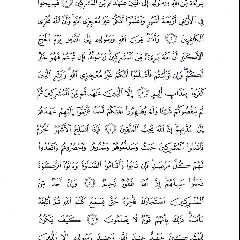 بَرَآءَةٌ مِّنَ ٱللَّهِ وَرَسُولِهِۦٓ إِلَى ٱلَّذِينَ عَٰهَدتُّم مِّنَ ٱلْمُشْرِكِينَ ١ فَسِيحُوا۟
فِى ٱلْأَرْضِ أَرْبَعَةَ أَشْهُرٍ وَٱعْلَمُوٓا۟ أَنَّكُمْ غَيْرُ مُعْجِزِى ٱللَّهِ وَأَنَّ ٱللَّهَ مُخْزِى
ٱلْكَٰفِرِينَ ٢ وَأَذَٰنٌ مِّنَ ٱللَّهِ وَرَسُولِهِۦٓ إِلَى ٱلنَّاسِ يَوْمَ ٱلْحَجِّ
ٱلْأَكْبَرِ أَنَّ ٱللَّهَ بَرِىٓءٌ مِّنَ ٱلْمُشْرِكِينَ وَرَسُولُهُۥ فَإِن تُبْتُمْ فَهُوَ خَيْرٌ
لَّكُمْ وَإِن تَوَلَّيْتُمْ فَٱعْلَمُوٓا۟ أَنَّكُمْ غَيْرُ مُعْجِزِى ٱللَّهِ وَبَشِّرِ ٱلَّذِينَ
كَفَرُوا۟ بِعَذَابٍ أَلِيمٍ ٣ إِلَّا ٱلَّذِينَ عَٰهَدتُّم مِّنَ ٱلْمُشْرِكِينَ ثُمَّ
لَمْ يَنقُصُوكُمْ شَيْـًٔا وَلَمْ يُظَٰهِرُوا۟ عَلَيْكُمْ أَحَدًا فَأَتِمُّوٓا۟ إِلَيْهِمْ عَهْدَهُمْ
إِلَىٰ مُدَّتِهِمْ إِنَّ ٱللَّهَ يُحِبُّ ٱلْمُتَّقِينَ ٤ فَإِذَا ٱنسَلَخَ ٱلْأَشْهُرُ ٱلْحُرُمُ
فَٱقْتُلُوا۟ ٱلْمُشْرِكِينَ حَيْثُ وَجَدتُّمُوهُمْ وَخُذُوهُمْ وَٱحْصُرُوهُمْ وَٱقْعُدُوا۟
لَهُمْ كُلَّ مَرْصَدٍ فَإِن تَابُوا۟ وَأَقَامُوا۟ ٱلصَّلَوٰةَ وَءَاتَوُا۟ ٱلزَّكَوٰةَ
فَخَلُّوا۟ سَبِيلَهُمْ إِنَّ ٱللَّهَ غَفُورٌ رَّحِيمٌ ٥ وَإِنْ أَحَدٌ مِّنَ
ٱلْمُشْرِكِينَ ٱسْتَجَارَكَ فَأَجِرْهُ حَتَّىٰ يَسْمَعَ كَلَٰمَ ٱللَّهِ ثُمَّ أَبْلِغْهُ
مَأْمَنَهُۥ ذَٰلِكَ بِأَنَّهُمْ قَوْمٌ لَّا يَعْلَمُونَ ٦ كَيْفَ يَكُونُ
لِلْمُشْرِكِينَ عَهْدٌ عِندَ ٱللَّهِ وَعِندَ رَسُولِهِۦٓ إِلَّا ٱلَّذِينَ